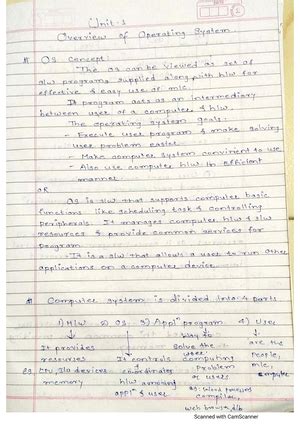 Unit: 1
Overview of Operating System
# OS Concept:
The OS can be viewed as set of
s/w programs supplied along with h/w for
effective & easy use of m/c.
It program acts as an intermediary
between user of a computer & h/w.
The operating system goals:
- Execute user program & make solving
user problem easier
- Make computer system convinient to use
- Also use computer h/w in efficient
manner
OR
OS is s/w that supports computer basic
functions like scheduling task & controlling
peripherals. It manages computer h/w & s/w
resources & provide common services for
program
- It is a s/w that allows a user to run other
applications on a computer device
# Computer system is divided into 4 parts
1) H/w 2) OS 3) Appln program 4) User
It provides
resources
eg CPU, I/O devices
memory
It controls
co-ordinates
h/w among
appln & user
way to
solve the
computing
problem
of users
compiler,
web browser, d/b
are the
people,
m/c,
computer
Scanned with CamScanner